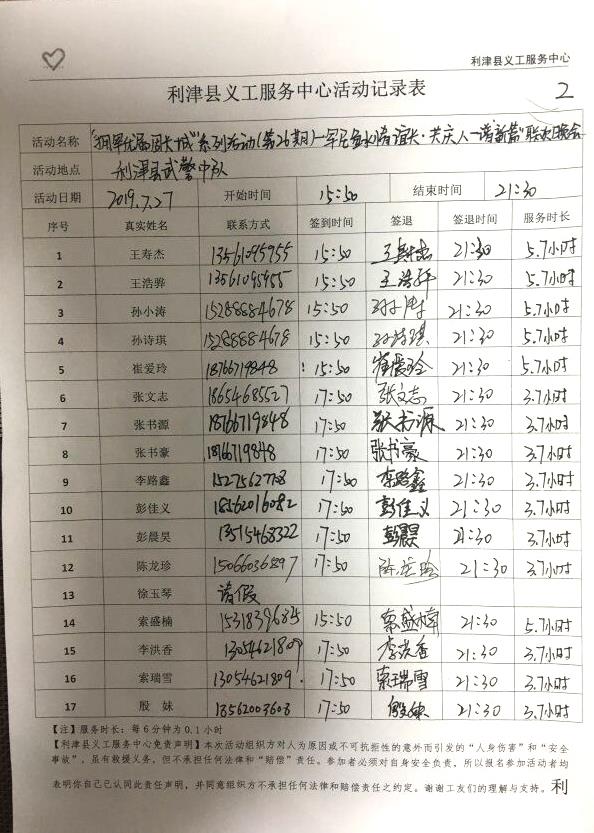 利津县义工服务中心
利津县义工服务中心活动记录表
2
活动名称 "拥军优属固长城"系列活动(第26期)—军民鱼水情谊长·共庆八一谱新篇"联欢晚会
活动地点 利津县武警中队
活动日期 2019.7.27 开始时间 15:50 结束时间 21:30
序号 真实姓名 联系方式 签到时间 签退 签退时间 服务时长
1 王寿杰 13561095955 15:50 王寿杰 21:30 5.7小时
2 王浩骅 13561095955 15:50 王浩骅 21:30 5.7小时
3 孙小涛 15288884678 15:50 孙小涛 21:30 5.7小时
4 孙诗琪 15288884678 15:50 孙诗琪 21:30 5.7小时
5 崔爱玲 18766719848 15:50 崔爱玲 21:30 5.7小时
6 张文志 18654685527 17:50 张文志 21:30 3.7小时
7 张书源 18766719848 17:50 张书源 21:30 3.7小时
8 张书豪 18766719848 17:50 张书豪 21:30 3.7小时
9 李路鑫 15275627708 17:50 李路鑫 21:30 3.7小时
10 彭佳义 18562016082 17:50 彭佳义 21:30 3.7小时
11 彭晨昊 13515468322 17:50 彭晨昊 21:30 3.7小时
12 陈龙珍 15066036897 17:50 陈龙珍 21:30 3.7小时
13 徐玉琴 请假
14 索盛楠 15318396825 15:50 索盛楠 21:30 5.7小时
15 李洪香 13054621809 17:50 李洪香 21:30 3.7小时
16 索瑞雪 13054621809. 17:50 索瑞雪 21:30 3.7小时
17 殷 妹 18562003608 17:50 殷妹 21:30 3.7小时
【注】服务时长：每6分钟为0.1小时
【利津县义工服务中心免责声明】本次活动组织方对人为原因或不可抗拒性的意外而引发的"人身伤害"和"安全
事故"，虽有救援义务，但不承担任何法律和"赔偿"责任。参加者必须对自身安全负责，所以报名参加活动者均
表明你自己已认同此责任声明，并同意组织方不承担任何法律和赔偿责任之约定。谢谢工友们的理解与支持。利